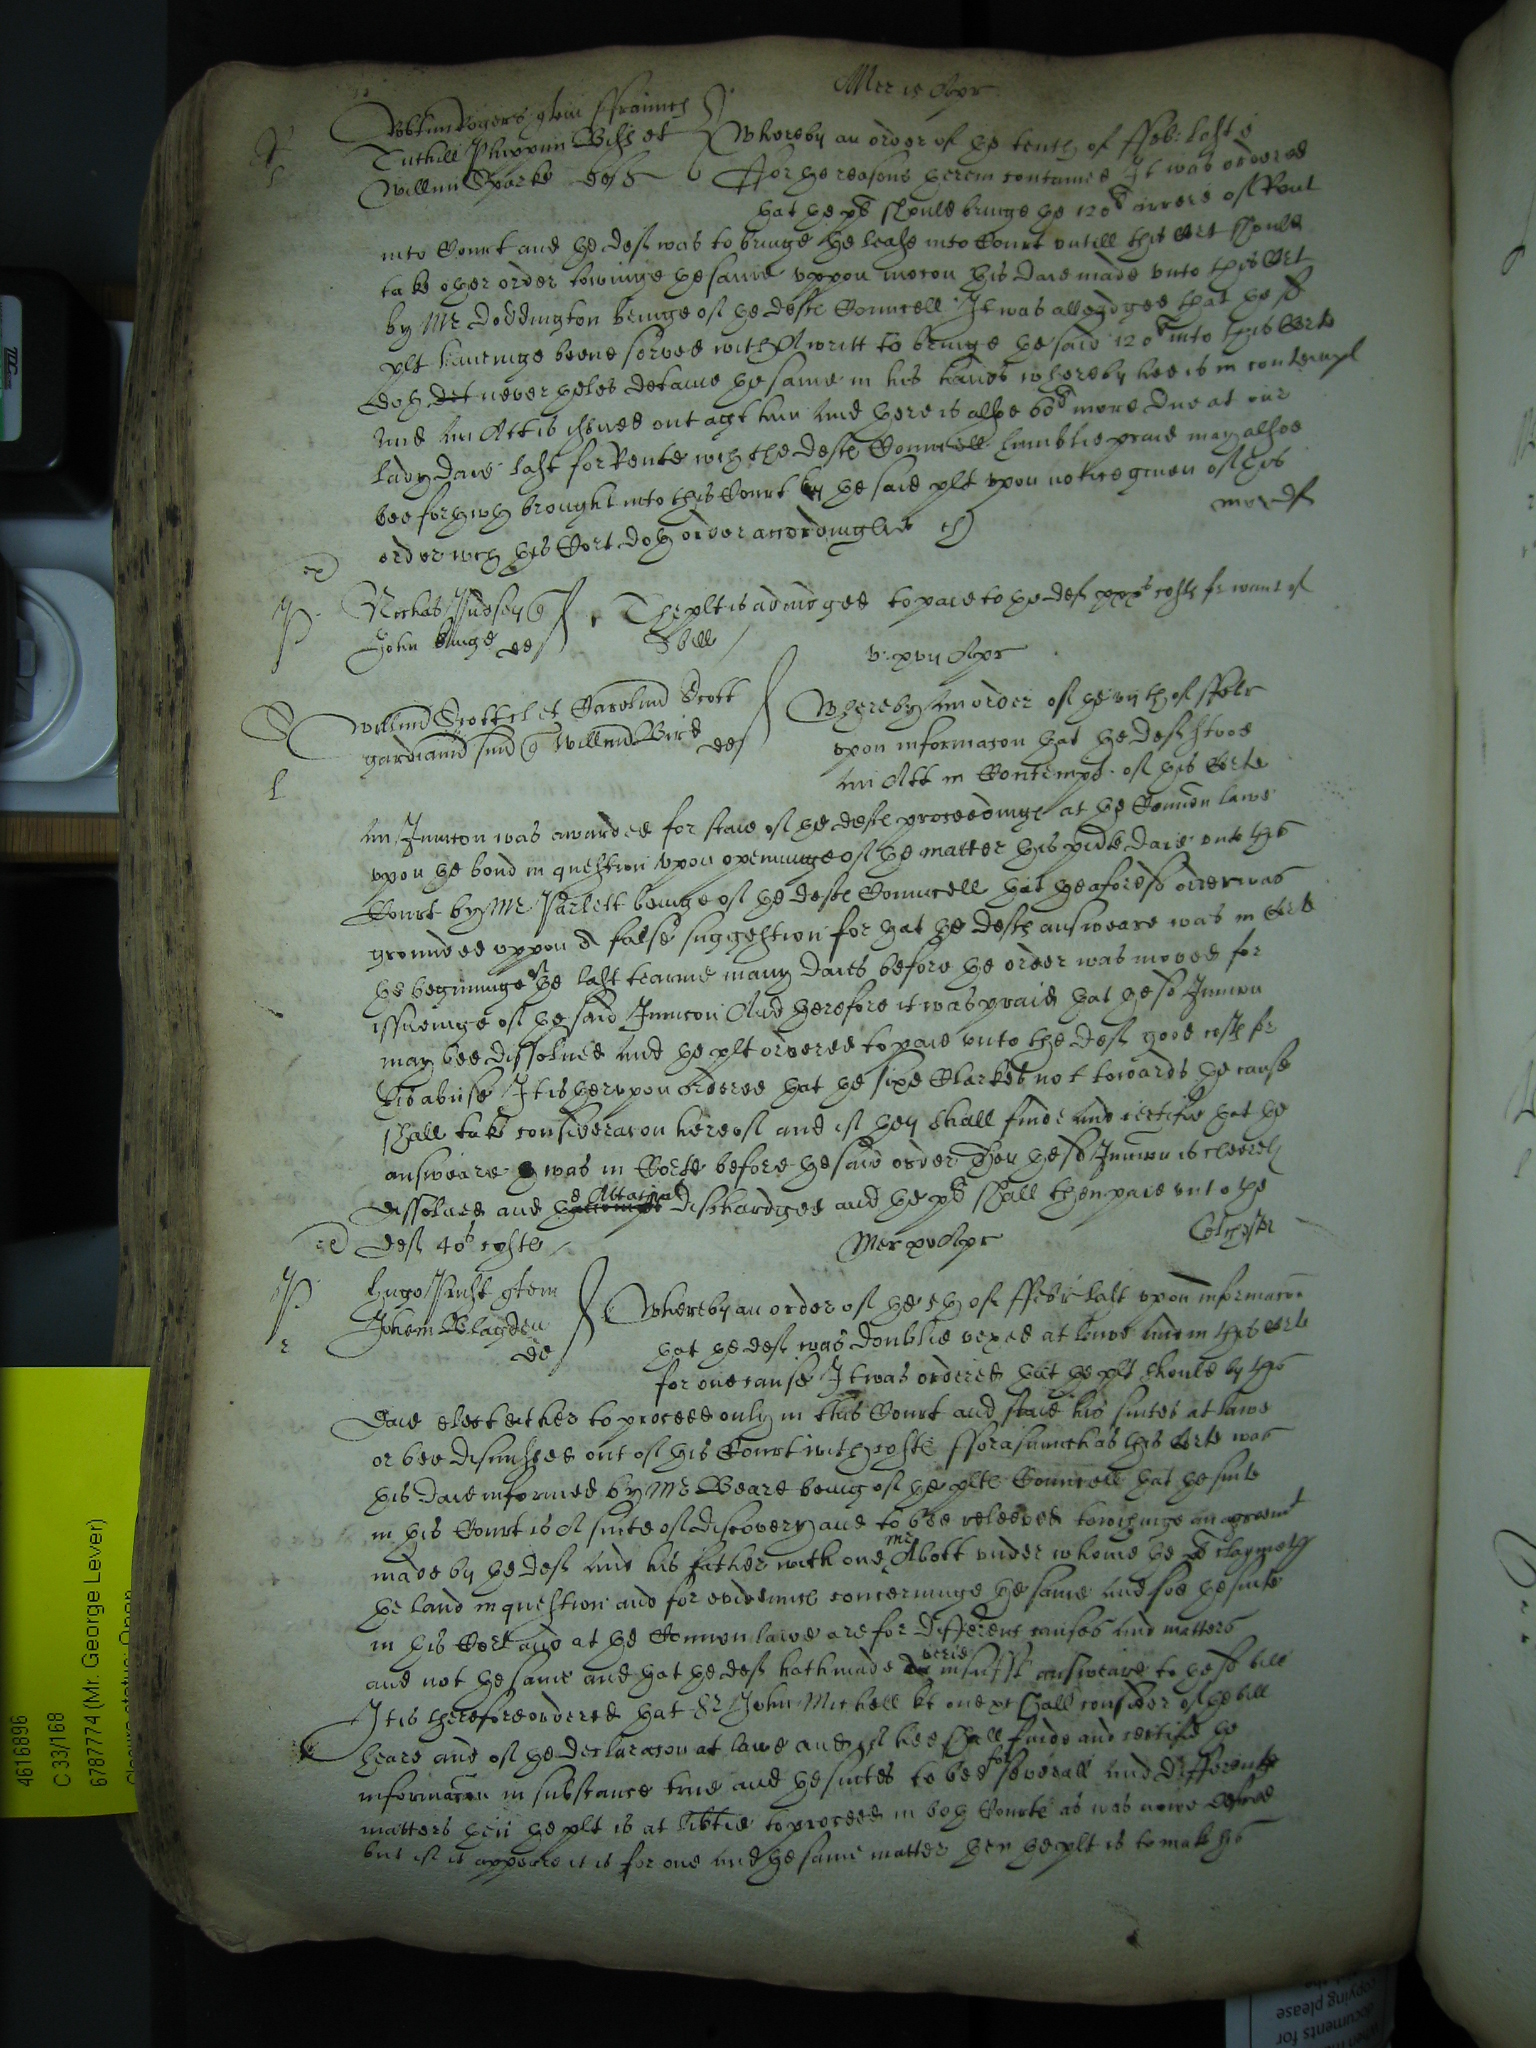 Mer 15 Apr
Robtum Rogers gen ffranncs
Tuthill Phippin Vid et
Willim Sparke def
Whereby an order of the tenth of ffeb: last &
ffor the reasons therein contained It was ordered
that the plt should bringe the 120li arrere of Rent
into Court and the def was to bringe the lease into Court untill this Cort should
take other order towinge the same uppon mocon this daie made unto this Cort
by Mr Doddington beinge of the deftes Councell It was alleadged that the sd
plt haveinge beene served with A writt to bringe the said 120li into this Corte
doth neverthelesse detaine the same in his hands whereby hee is in contempt
And An Att is issued out agt him And there is alsoe 60li more due at our
Lady daie last for Rente wch the deftes Councell humblie praid may alsoe
bee forthwth brought into this Court by the said plt upon notice given of this
order wch this Cort doth order accordinglie
Nichas
John def
The plt is adiudged to paie to the def xxxs costs for want of
A bill
V. xvii Apr
Willmd Scott et Carolud Scott
gardianid Willmd Bird
def
Whereby An order of the viith of ffebr
upon informacon that the deft stood
An Att in Contempt of this Corte
An Iniuncon was awarded for staie of the deftes proceedinge at the Comon lawe
upon the bond in question upon openinge of the matter this pnte daie unto this
Court by Mr beinge of the deftes Councell that the aforesd order was
grounded uppon A false suggestion for that the deftes answeare was in Corte
the beginninge of the last tearme many daies before the order was moved for
issueinge of the said Iniuncon And therefore it was praid that the sd Iniuncn
may bee dissolved And the plt ordered to paie unto the deft good costs for
his abuse It is herupon ordered that the sixe Clarkes not towards the cause
shall take consideracon hereof and if they shall finde And certifie that the
answeare was in Corte before the said order then the sd Iniuncn is cleerely
dissolved and the Attachmt dischardged and the plt shall then paie unto the
def 40s costs
Mer xv Apr
Hugo gten
Johem Blagden
def
Whereby an order of the 5th of ffebr last upon informacon
that the deft was doublie vexed at lawe And in this Corte
for one cause It was ordered that the plt should by this
daie elect either to proceed only in this Court and staie his suites at lawe
or bee dismissed out of this Court with costs fforasmuch as this Corte was
this daie informed by Mr Beare being of the plts Councell that the suite
in this Court is A suite of discovery and to bee releeved towchinge an agreemt
made by the deft And his father with one Mr Abott under whome the claymeth
the land in question and for evidences concerninge the same And soe the suite
in this Cort and at the Common lawe are for different causes And matters
and not the same and that the deft hath made verie insufft answeare to the sd bill
It is therefore ordered that Sr John Michell kt one &c shall consider of the bill
heare and of the declaracon at lawe and if hee shall finde and certifie the
informacon in substance true and the suites to bee for severall And differente
matters then the plt is at libtie to proceed in both Courts as was nowe desired
but if it appeare it is for one And the same matter then the plt is to make his
4616896
C 33/168
6787774 (Mr. George Lever)